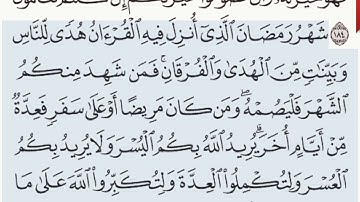 شَهْرُ رَمَضَانَ ٱلَّذِىٓ أُنزِلَ فِيهِ ٱلْقُرْءَانُ هُدًى لِّلنَّاسِ ١٨٤
وَبَيِّنَـٰتٍ مِّنَ ٱلْهُدَىٰ وَٱلْفُرْقَانِ ۚ فَمَن شَهِدَ مِنكُمُ
ٱلشَّهْرَ فَلْيَصُمْهُ ۖ وَمَن كَانَ مَرِيضًا أَوْ عَلَىٰ سَفَرٍ فَعِدَّةٌ
مِّنْ أَيَّامٍ أُخَرَ ۗ يُرِيدُ ٱللَّهُ بِكُمُ ٱلْيُسْرَ وَلَا يُرِيدُ بِكُمُ
ٱلْعُسْرَ وَلِتُكْمِلُوا۟ ٱلْعِدَّةَ وَلِتُكَبِّرُوا۟ ٱللَّهَ عَلَىٰ مَا